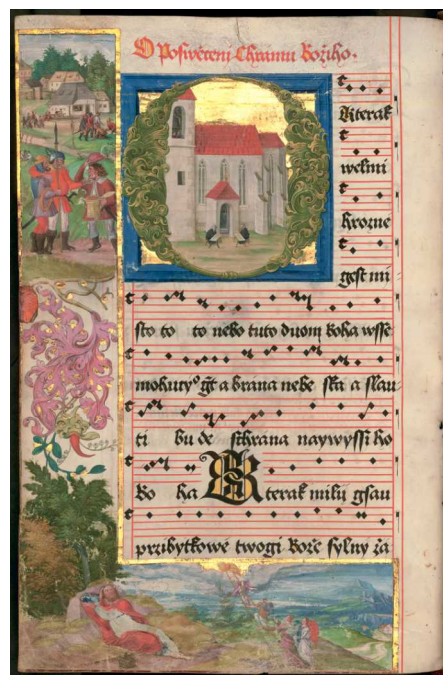 O Poswěceni Chramu Božiho.
Kterak
welmi
hrozne
gest mi
sto to to nebo tuto duom boha wsse
mohuty° gt a brana nebe ska a slau-
ti bu de schrana naywyssi ho
Bo ha Kterak milij gsau
przibytkowe twogi Bože sylny za